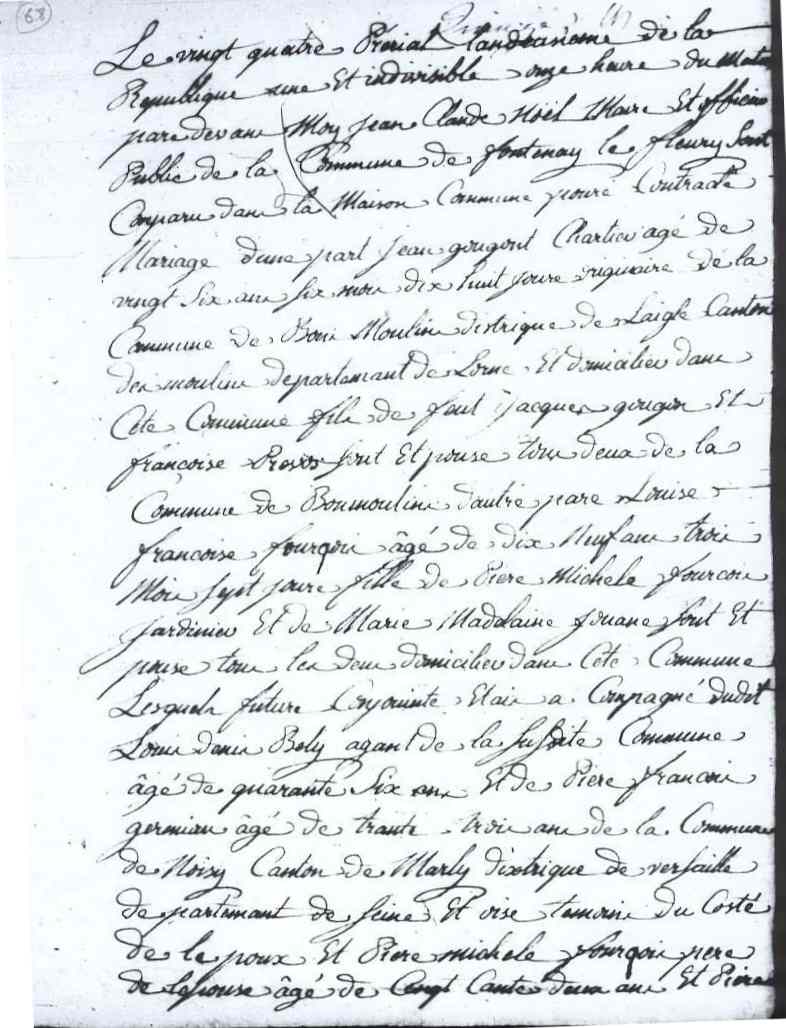 68
Le vingt quatre Prerial Landeusieme de la
Republique une Et indivisible onze heure du Matin
pare devant Moy jean Claude Noël Maire Et officier
Public de la Commune de fontenay le fleury Sont
Comparu dans la Maison Commune pour Contracte
Mariage dune part jean gougont Chartier agé de
vingt Six ans six mois dix huit joure origainaire de la
Commune de Bons Moulins distrique de Laigle Canton
des moulins departemant de Lorne Et domicilies dans
Cete Commune fils de feut jacques gougon Et
françoise Prevos sont Et pouse tous deux de la
Commune de Bonmoulins dautre pare Louise
francoise fourqois âgé de dix Neuf ans trois
Mois sept joure fille de Piere Michele fourcois
jardinier Et de Marie Madelaine jouane sont Et
pouse tous les deux domicilies dans Cete Commune
Lesquels future Conjointe Etais a Compagné dudit
Louis denis Boly agant de la susdite Commune
âgé de quarante Six ans Et de Piere francois
germian âgé de trante trois ans de la Commune
de Noisy Canton de Marly dixtrique de versaille
departemant de seine Et oise temoins du Costé
de le poux Et Piere michele fourqois pere
de lepouse âgé de Cinqt Cante deux ans Et Piere